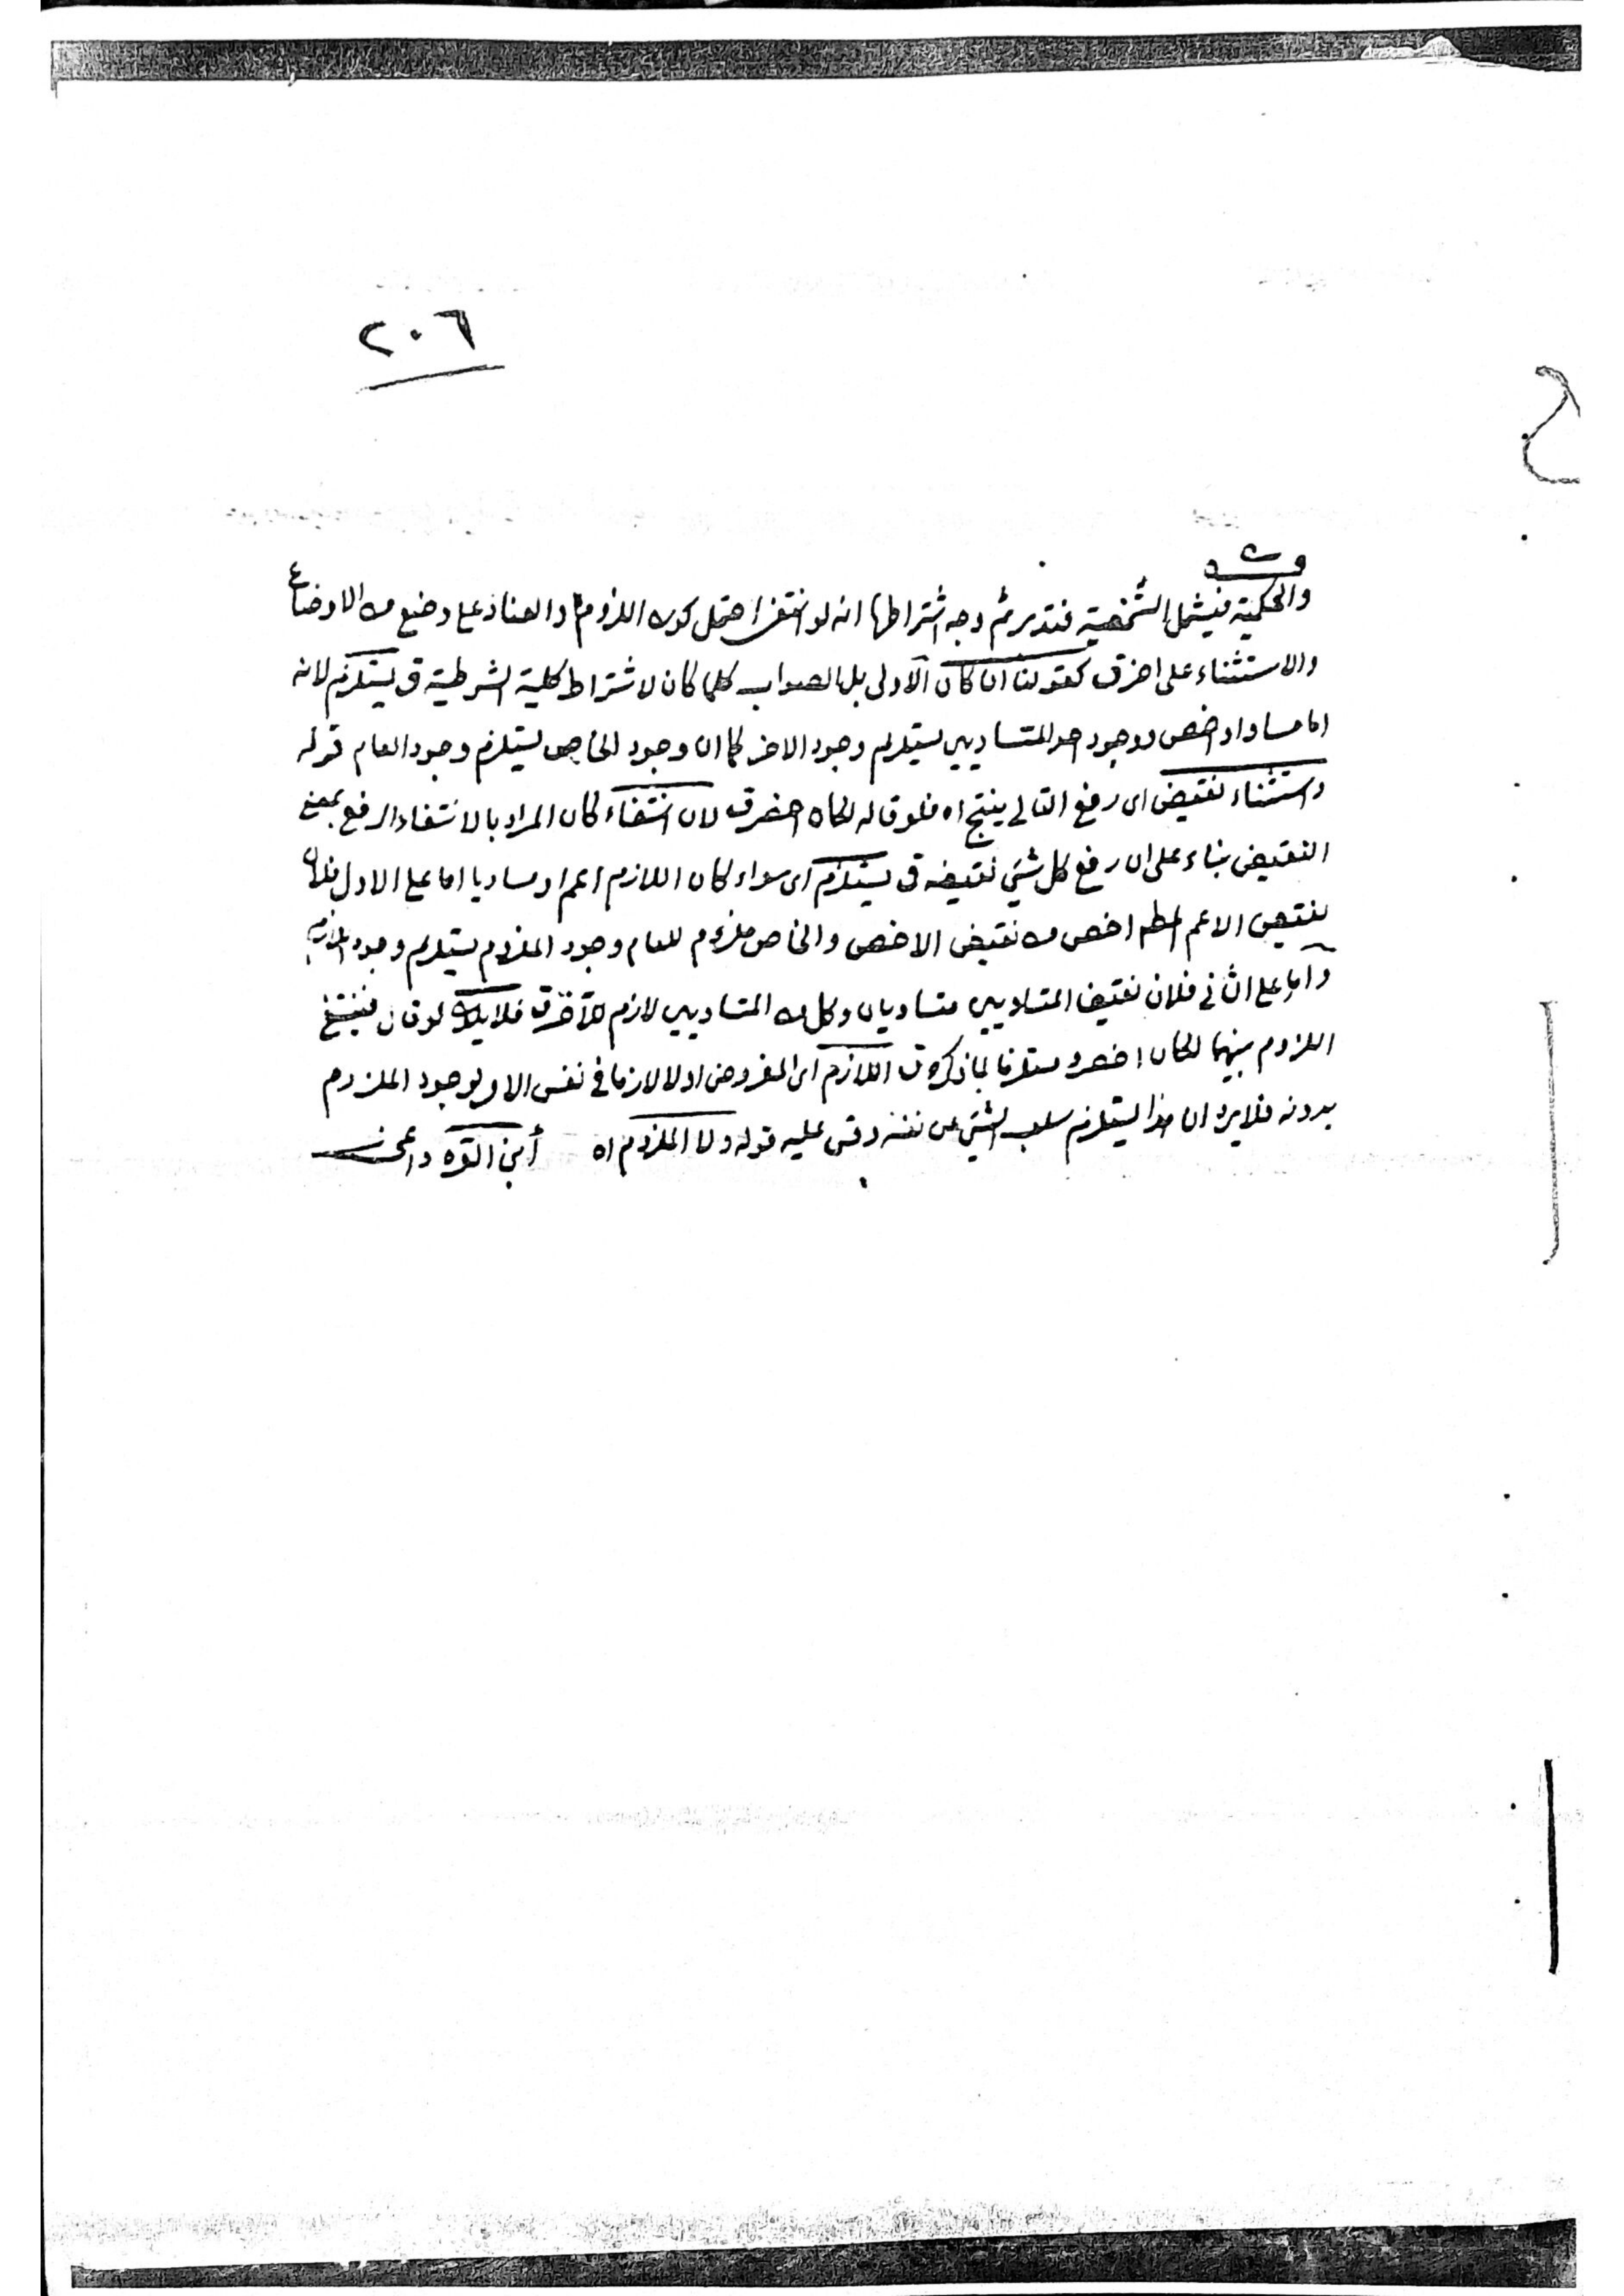 ٢٠٦
والحكمية فيشمل الشخصية فتدبر ثم وجه اشتراطها انه لو انتفى احتمل كون اللزوم او العناد على وضع من الاوضاع
والاستثناء على اخر ق كقولنا ان كان الاولى بل الصواب كلما كان لاشتراط كلية الشرطية ق يستلزم لانه
اما مساو او اخص ووجود احد المتساويين يستلزم وجود الاخر كما ان وجود الخاص يستلزم وجود العام قوله
واستثناء نقيض اى رفع التالى ينتج اه فلو قاله لكان اخصر ق لان انتفاء كان المراد بالانتفاء الرفع بمعنى
النقيض بناء على ان رفع كل شئ نقيضه ق يستلزم اى سواء كان اللازم اعم او مساويا اما على الاول فلان
نقيض الاعم اخص من نقيض الاخص والخاص ملزوم للعام وجود الملزوم يستلزم وجود اللازم
واما على الثانى فلان نقيض المتساويين متساويان وكل من المتساويين لازم للآخر ق فلا يلزم لو قال فينتفى
اللزوم بينهما لكان اخصر ومستلزما لما ذكره ق اللازم اى المفروض اولا لازما فى نفس الامر لوجود الملزوم
بدونه فلا يرد ان هذا يستلزم سلب الشئ عن نفسه وقس عليه قوله ولا الملزوم اه ابن القره داغى